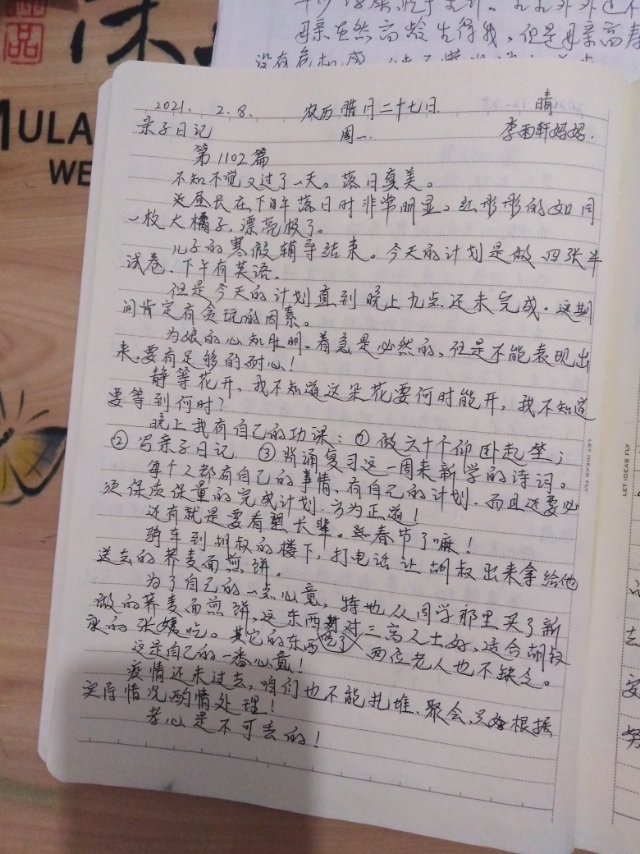 母亲虽然高龄生得我，但是母亲高寿
没有
MULA
WE
2021. 2. 8. 农历 腊月二十七日 晴
亲子日记 周一. 李雨轩妈妈.
第1102篇
不知不觉又过了一天。落日真美。
在下午落日时非常明显。红彤彤的如同
一枚大橘子，漂亮极了。
儿子的寒假辅导结束。今天的计划是做四张半
试卷，下午有英语。
但是今天的计划直到晚上九点还未完成。这期
间肯定有贪玩的因素。
为娘的心知肚明，着急是必然的，但是不能表现出
来，要有足够的耐心！
静等花开，我不知道这朵花要何时能开，我不知道
要等到何时？
晚上我有自己的功课：①做六十个仰卧起坐；
②写亲子日记 ③背诵复习这一周来新学的诗词。
每个人都有自己的事情，有自己的计划，而且还要必
须保质保量的完成计划，方为正道！
还有就是要看望长辈。延春节了嘛！
骑车到胡叔的楼下，打电话让胡叔出来拿给他
送去的荞麦面煎饼。
为了自己的一点心意，特地从同学那里买了新
做的荞麦面煎饼，这东西对三高人士好，适合胡叔
家的张姨吃。其它的东西两位老人也不缺乏。
这是自己的一番心意！
疫情还未过去，咱们也不能扎堆、聚会，只好根据
实际情况酌情处理！
孝心是不可丢的！
LET IDEAS FLY